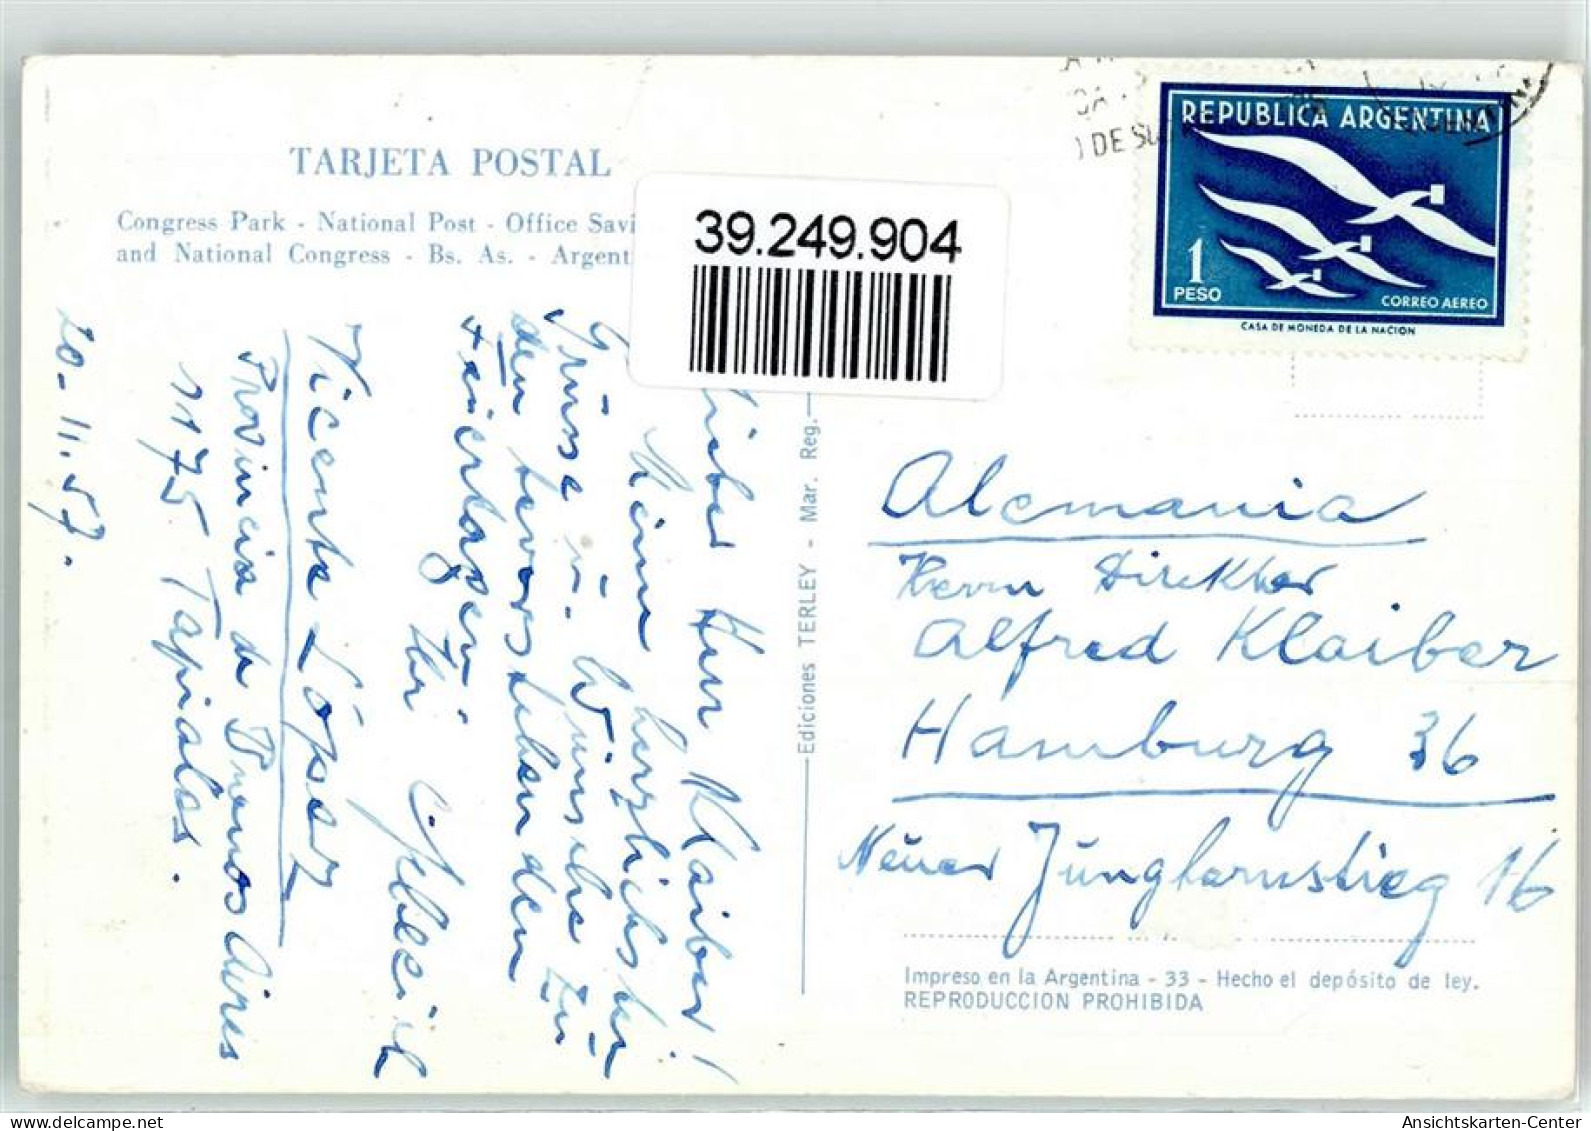 TARJETA POSTAL
Congress Park - National Post - Office Savi
and National Congress - Bs. As. - Argent
39.249.904
DE SU
REPUBLICA ARGENTINA
1
PESO
CORREO AEREO
CASA DE MONEDA DE LA NACION
Lieber Herr Klaiber!
herzlichsten
Grüsse u. Wünsche zu
den bevorstehenden
Feiertagen
Ihr
Vicente López
Provincia de Buenos Aires
1175 Tapiales.
20.11.57.
Ediciones TERLEY - Mar. Reg.
Alemania
Herrn Direktor
Alfred Klaiber
Hamburg 36
Neuer Jungfernstieg 16
Impreso en la Argentina - 33 - Hecho el depósito de ley.
REPRODUCCION PROHIBIDA
Ansichtskarten-Center